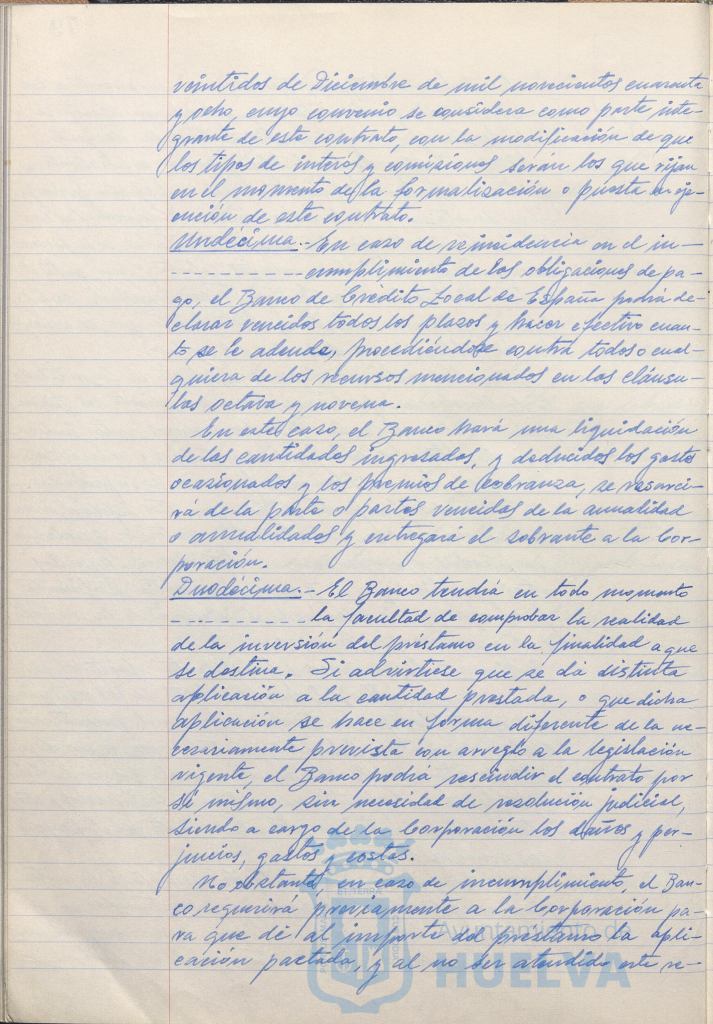 veintidos de Diciembre de mil novecientos cuarenta
y ocho, cuyo convenio se considera como parte inte-
grante de este contrato, con la modificación de que
los tipos de interés y comisiones serán los que rijan
en el momento de la formalización o puesta en eje-
cución de este contrato.
Undécima.- En caso de reincidencia en el in-
cumplimiento de las obligaciones de pa-
go, el Banco de Crédito Local de España podrá de-
clarar vencidos todos los plazos y hacer efectivo cuan-
to se le adende, procediéndose contra todos o cual-
quiera de los recursos mencionados en las cláusu-
las octava y novena.
En este caso, el Banco hará una liquidación
de las cantidades ingresadas, y deducidos los gastos
ocasionados y los premios de cobranza, se resarci-
rá de la parte o partes vencidas de la anualidad
o anualidades y entregará el sobrante a la Cor-
poración.
Duodécima.- El Banco tendrá en todo momento
la facultad de comprobar la realidad
de la inversión del préstamo en la finalidad a que
se destina. Si advirtiese que se da distinta
aplicación a la cantidad prestada, o que dicha
aplicación se hace en forma diferente de la ne-
cesariamente prevista con arreglo a la legislación
vigente, el Banco podrá rescindir el contrato por
sí mismo, sin necesidad de resolución judicial,
siendo a cargo de la Corporación los daños y per-
juicios, gastos y costas.
No obstante, en caso de incumplimiento, el Ban-
co requerirá previamente a la Corporación pa-
ra que dé al importe del préstamo la apli-
cación pactada, y al no ser atendido este re-
Ayuntamiento de
HUELVA